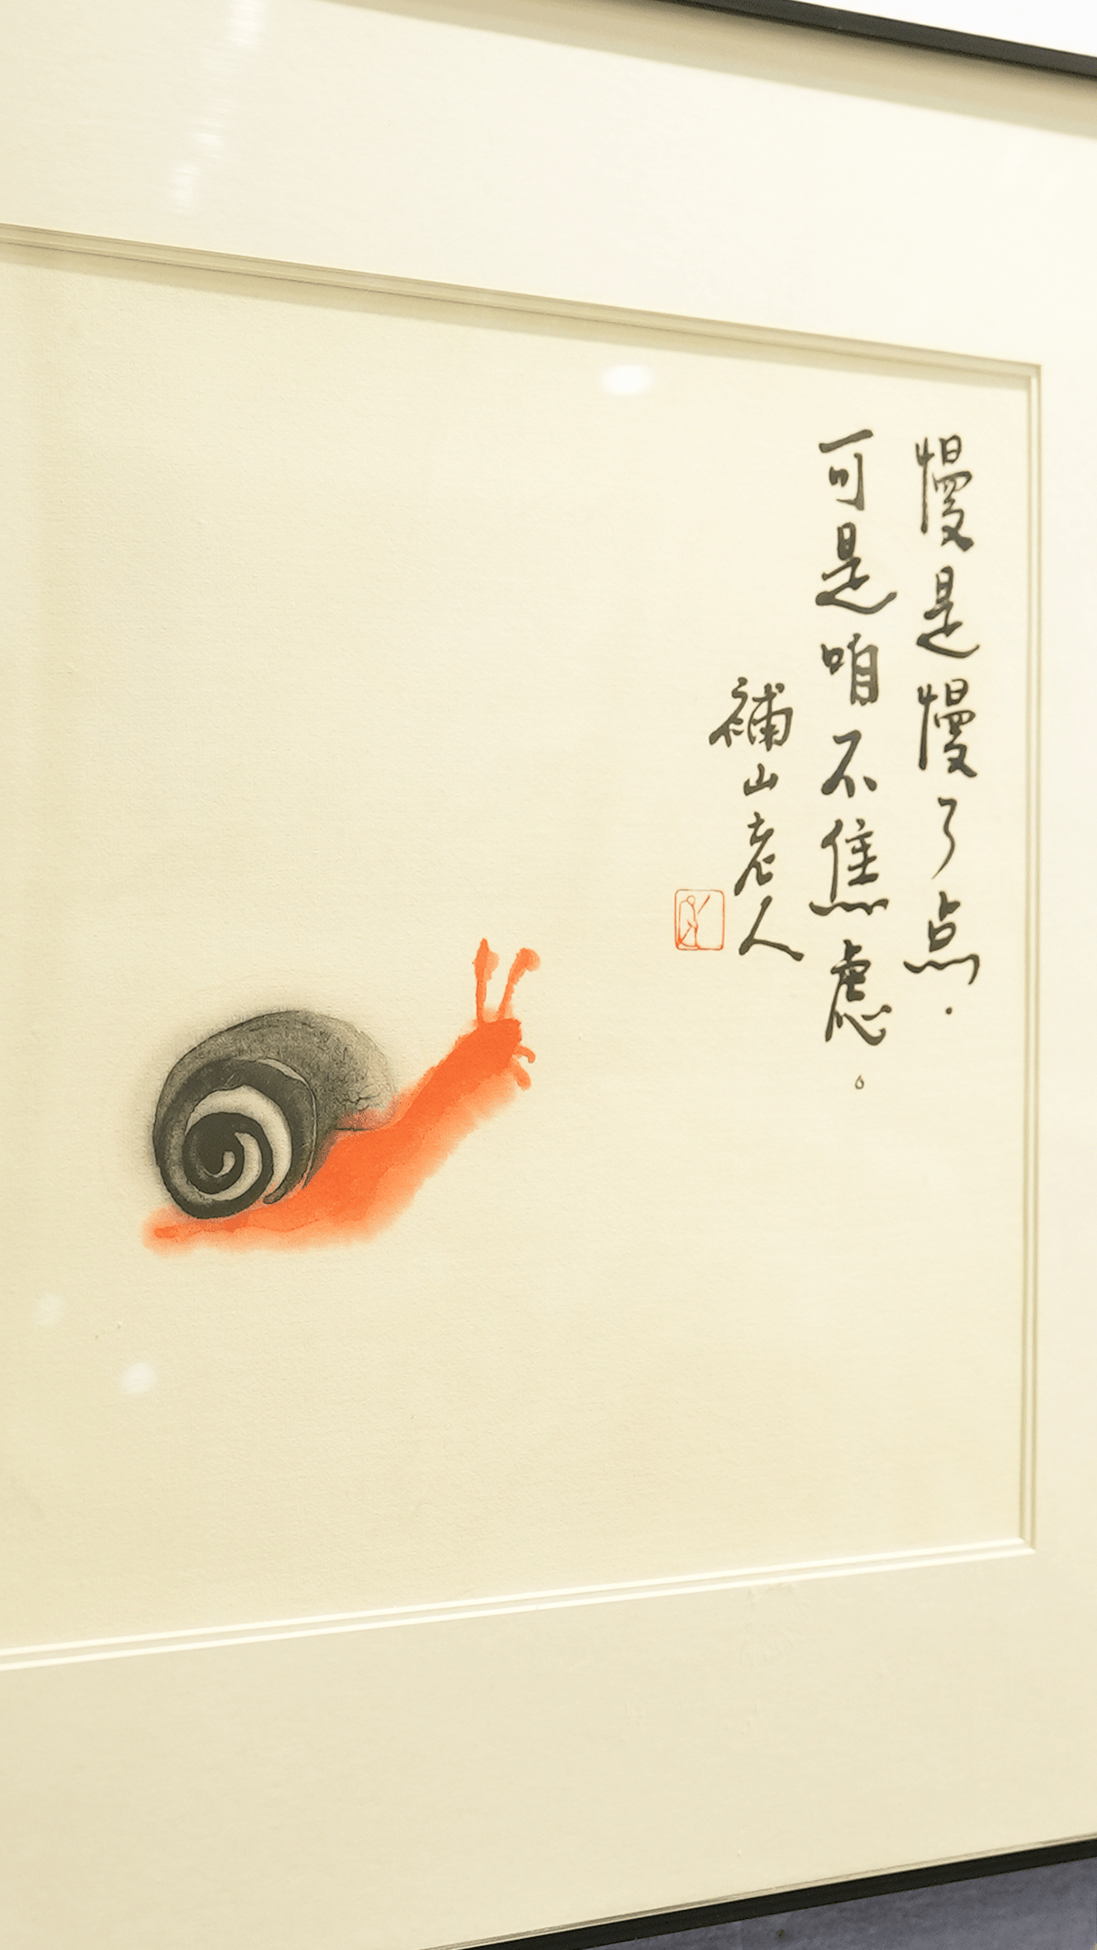 慢是慢了点.
可是咱不焦慮。
補山老人